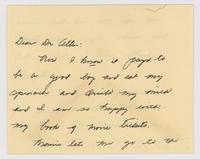 Dear Dr. Allen:
Now I know it pays to
be a good boy and eat my
spinach and drink my milk
and I am so happy with
my book of movie tickets.
Mamie lets me go to the